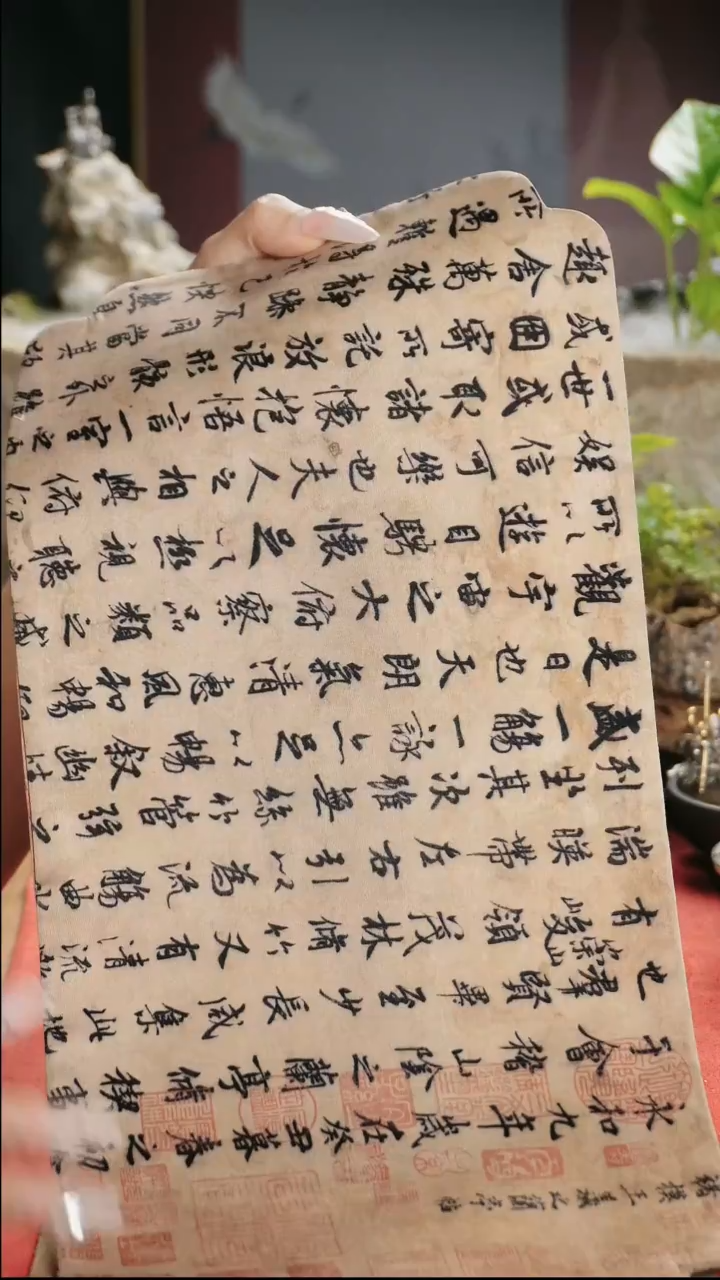 褚模王羲之蘭亭帖
永和九年歲在癸丑暮春之初會
于會稽山陰之蘭亭脩禊事
也羣賢畢至少長咸集此地
有崇山峻領茂林脩竹又有清流激
湍暎帶左右引以為流觴曲水
列坐其次雖無絲竹管弦之
盛一觴一詠亦足以暢敘幽情
是日也天朗氣清惠風和暢仰
觀宇宙之大俯察品類之盛
所以遊目騁懷足以極視聽之
娛信可樂也夫人之相與俯仰
一世或取諸懷抱悟言一室之內
或因寄所託放浪形骸之外雖
趣舍萬殊靜躁不同當其
所遇蹔得於己快然自